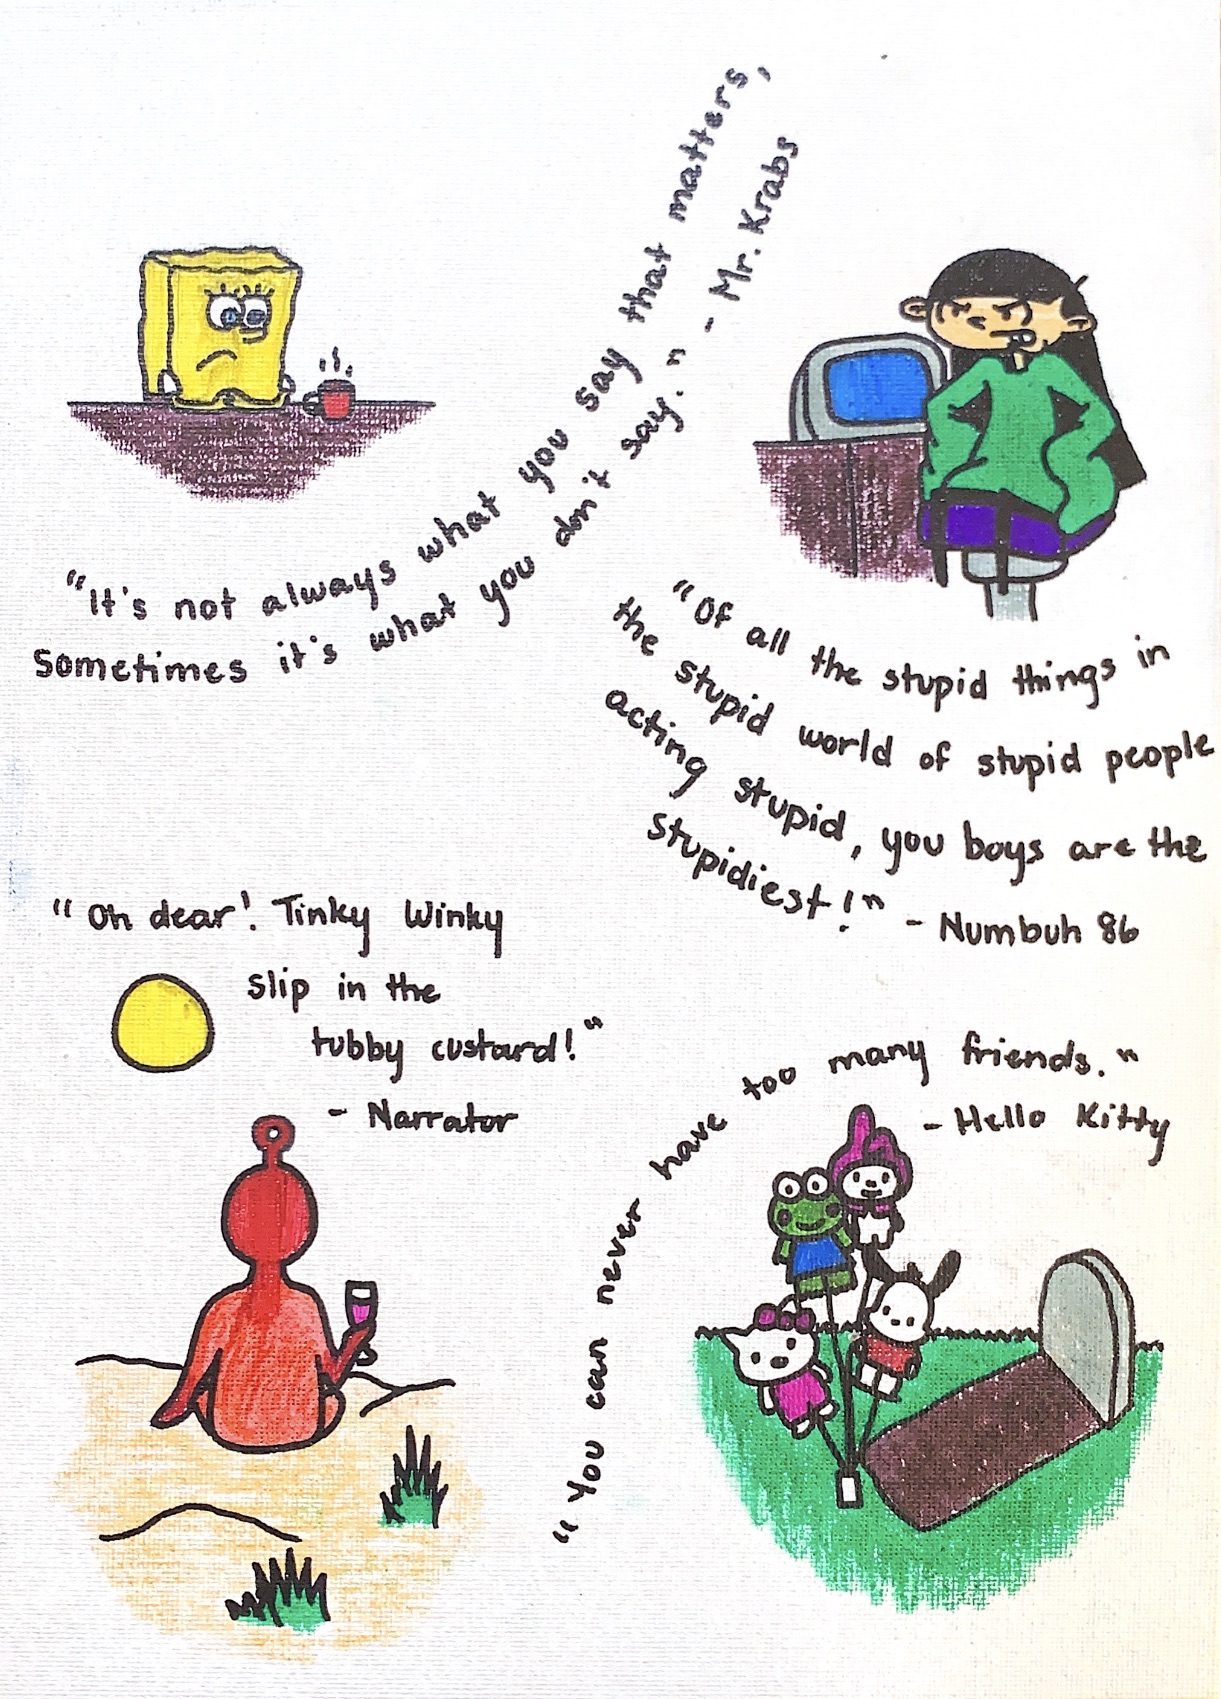 "It's not always what you say that matters,
Sometimes it's what you don't say." - Mr. Krabs
"Of all the stupid things in
the stupid world of stupid people
acting stupid, you boys are the
stupidiest!" - Numbuh 86
"Oh dear! Tinky Winky
slip in the
tubby custard!"
- Narrator
"You can never have too many friends."
- Hello Kitty